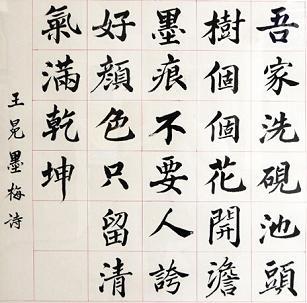 吾家洗硯池頭
樹個個花開澹
墨痕不要人誇
好顏色只留清
氣滿乾坤
王冕墨梅诗